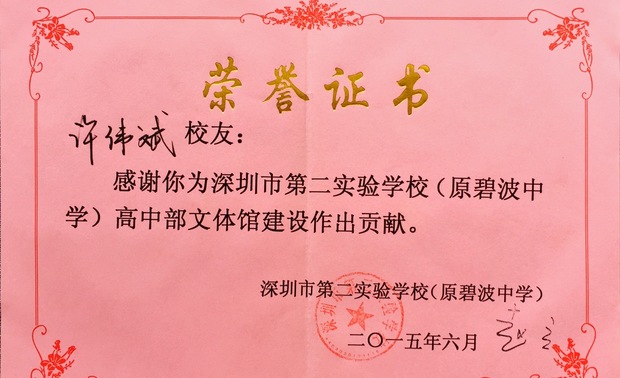 荣誉证书
许伟斌 校友：
感谢你为深圳市第二实验学校（原碧波中
学）高中部文体馆建设作出贡献。
深圳市第二实验学校（原碧波中学）
二〇一五年六月